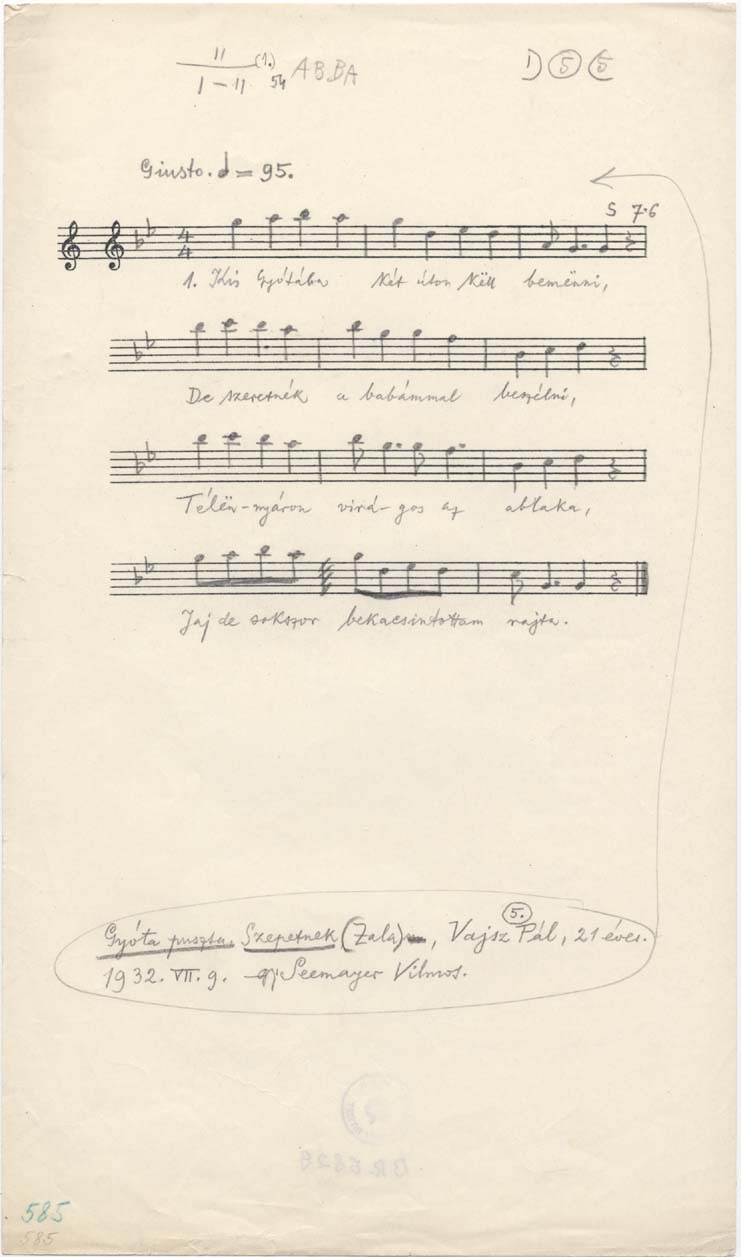 II
I – II (1.) 54 ABBA 1) 5 5
Giusto. = 95.
S 7·6
4
4
1. Kis Gyótába két úton këll bemënni,
De szeretnék a babámmal beszélni,
Télën-nyáron virá-gos az ablaka,
Jaj de sokszor bekacsintottam rajta.
5.
Gyóta puszta, Szepetnek (Zala), Vajsz Pál, 21 éves.
1932. VII. 9. Seemayer Vilmos.
585
585